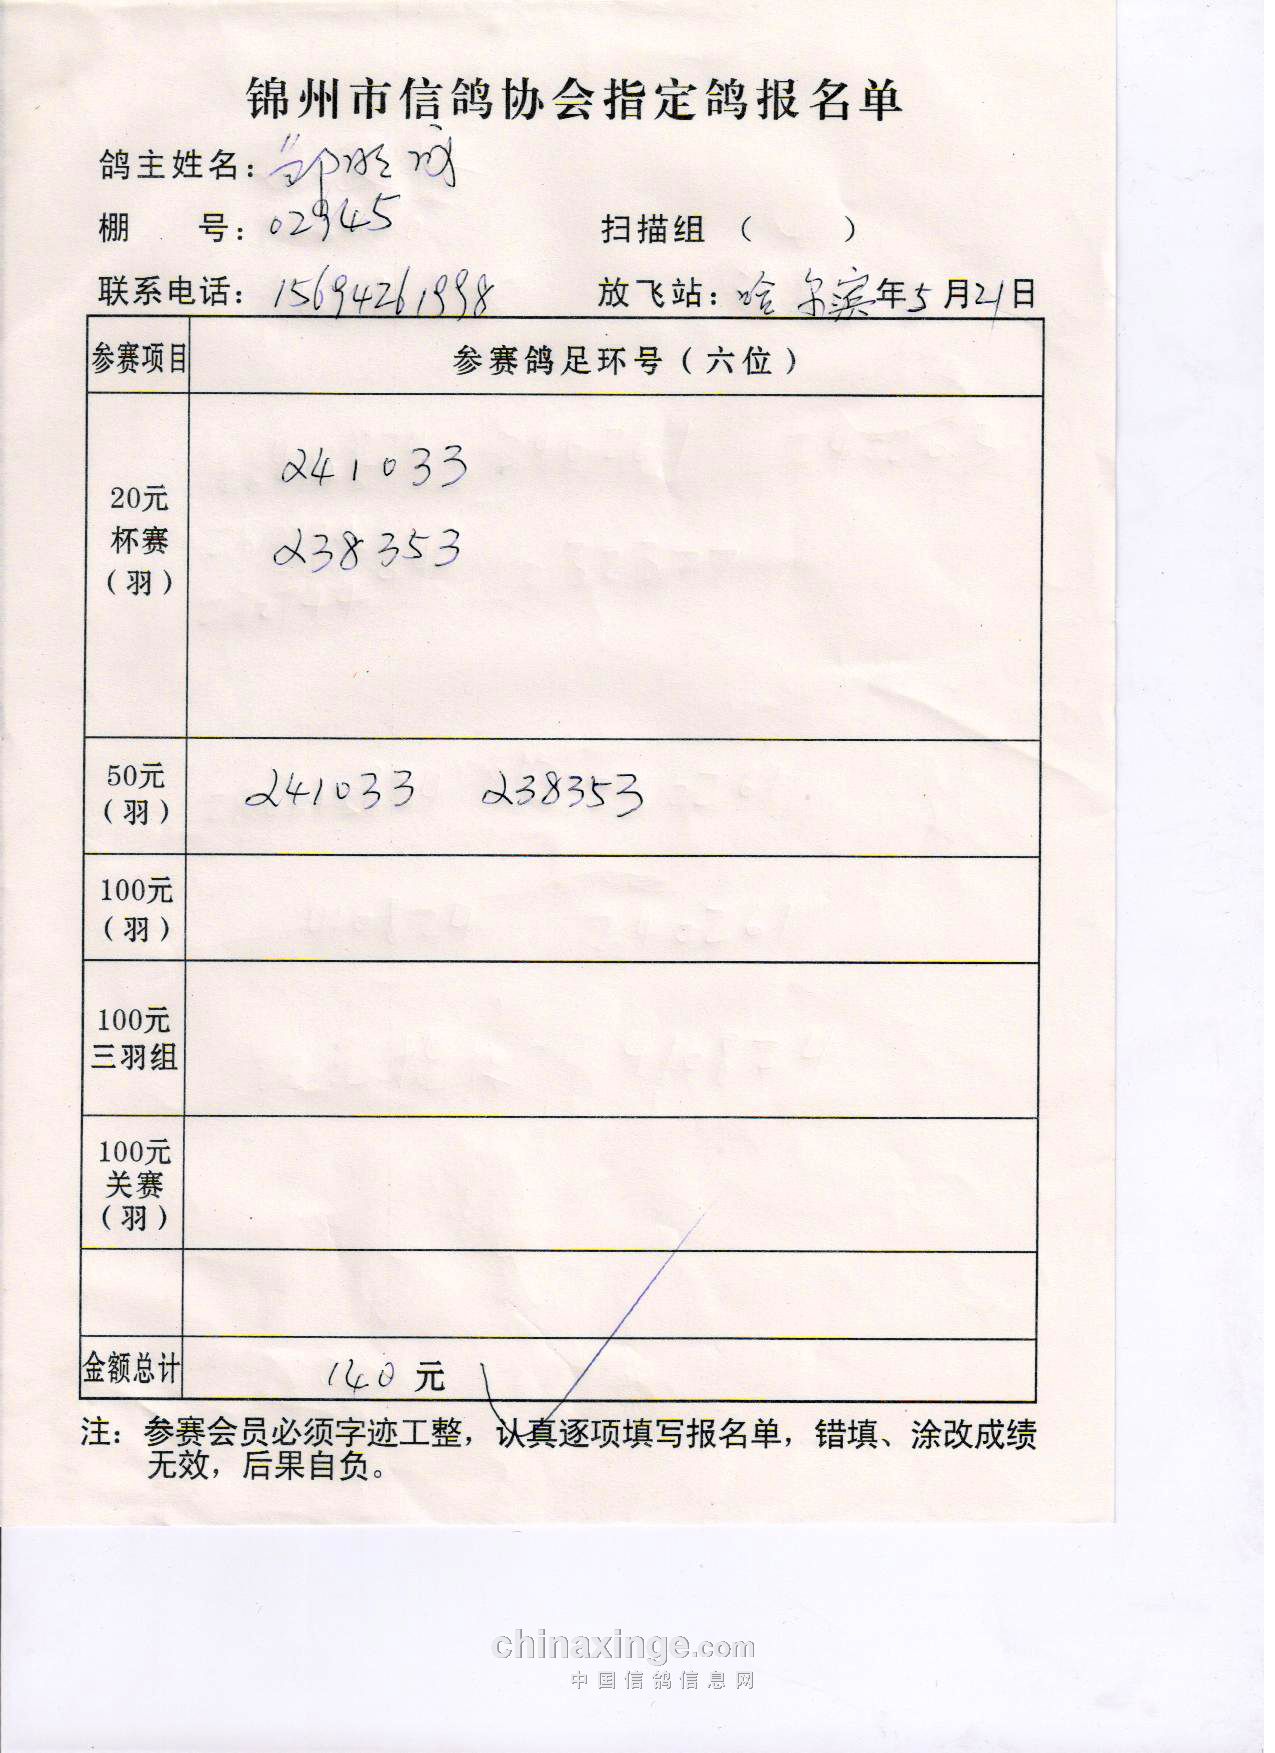 锦州市信鸽协会指定鸽报名单
鸽主姓名：邹
棚 号：02945 扫描组（ ）
联系电话：15694261998 放飞站：哈尔滨年5月21日
参赛项目 参赛鸽足环号（六位）
20元
杯赛
（羽）
241033
238353
50元
（羽）
241033 238353
100元
（羽）
100元
三羽组
100元
关赛
（羽）
金额总计 140元
注：参赛会员必须字迹工整，认真逐项填写报名单，错填、涂改成绩
无效，后果自负。
chinaxinge.com
中国信鸽信息网